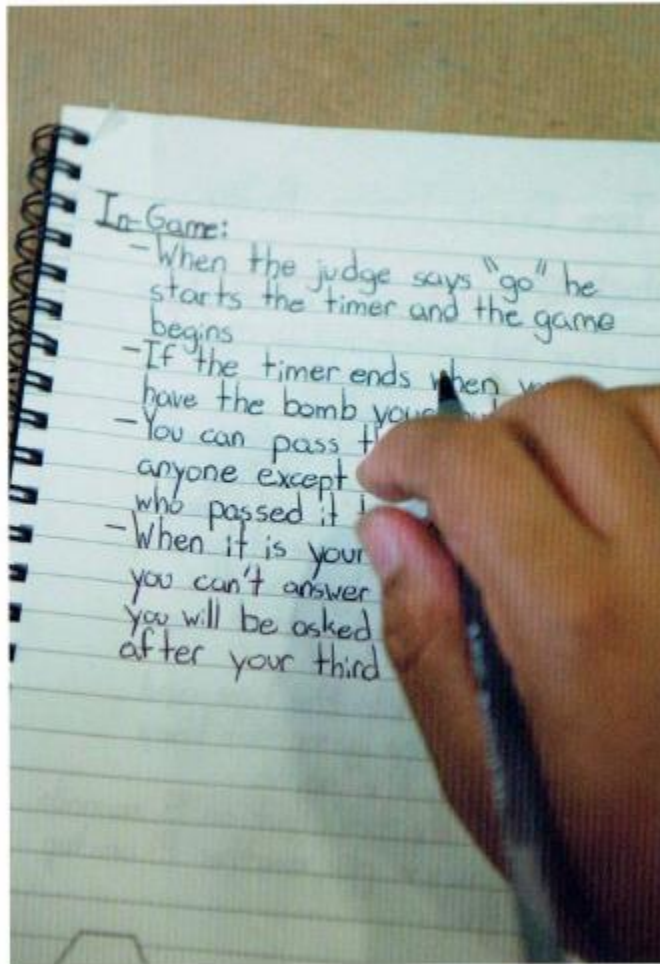 In-Game:
-When the judge says "go" he
starts the timer and the game
begins
-If the timer ends when
have the bomb
-You can pass
anyone except
who passed it
-When it is your
you can't answer
you will be asked
after your third